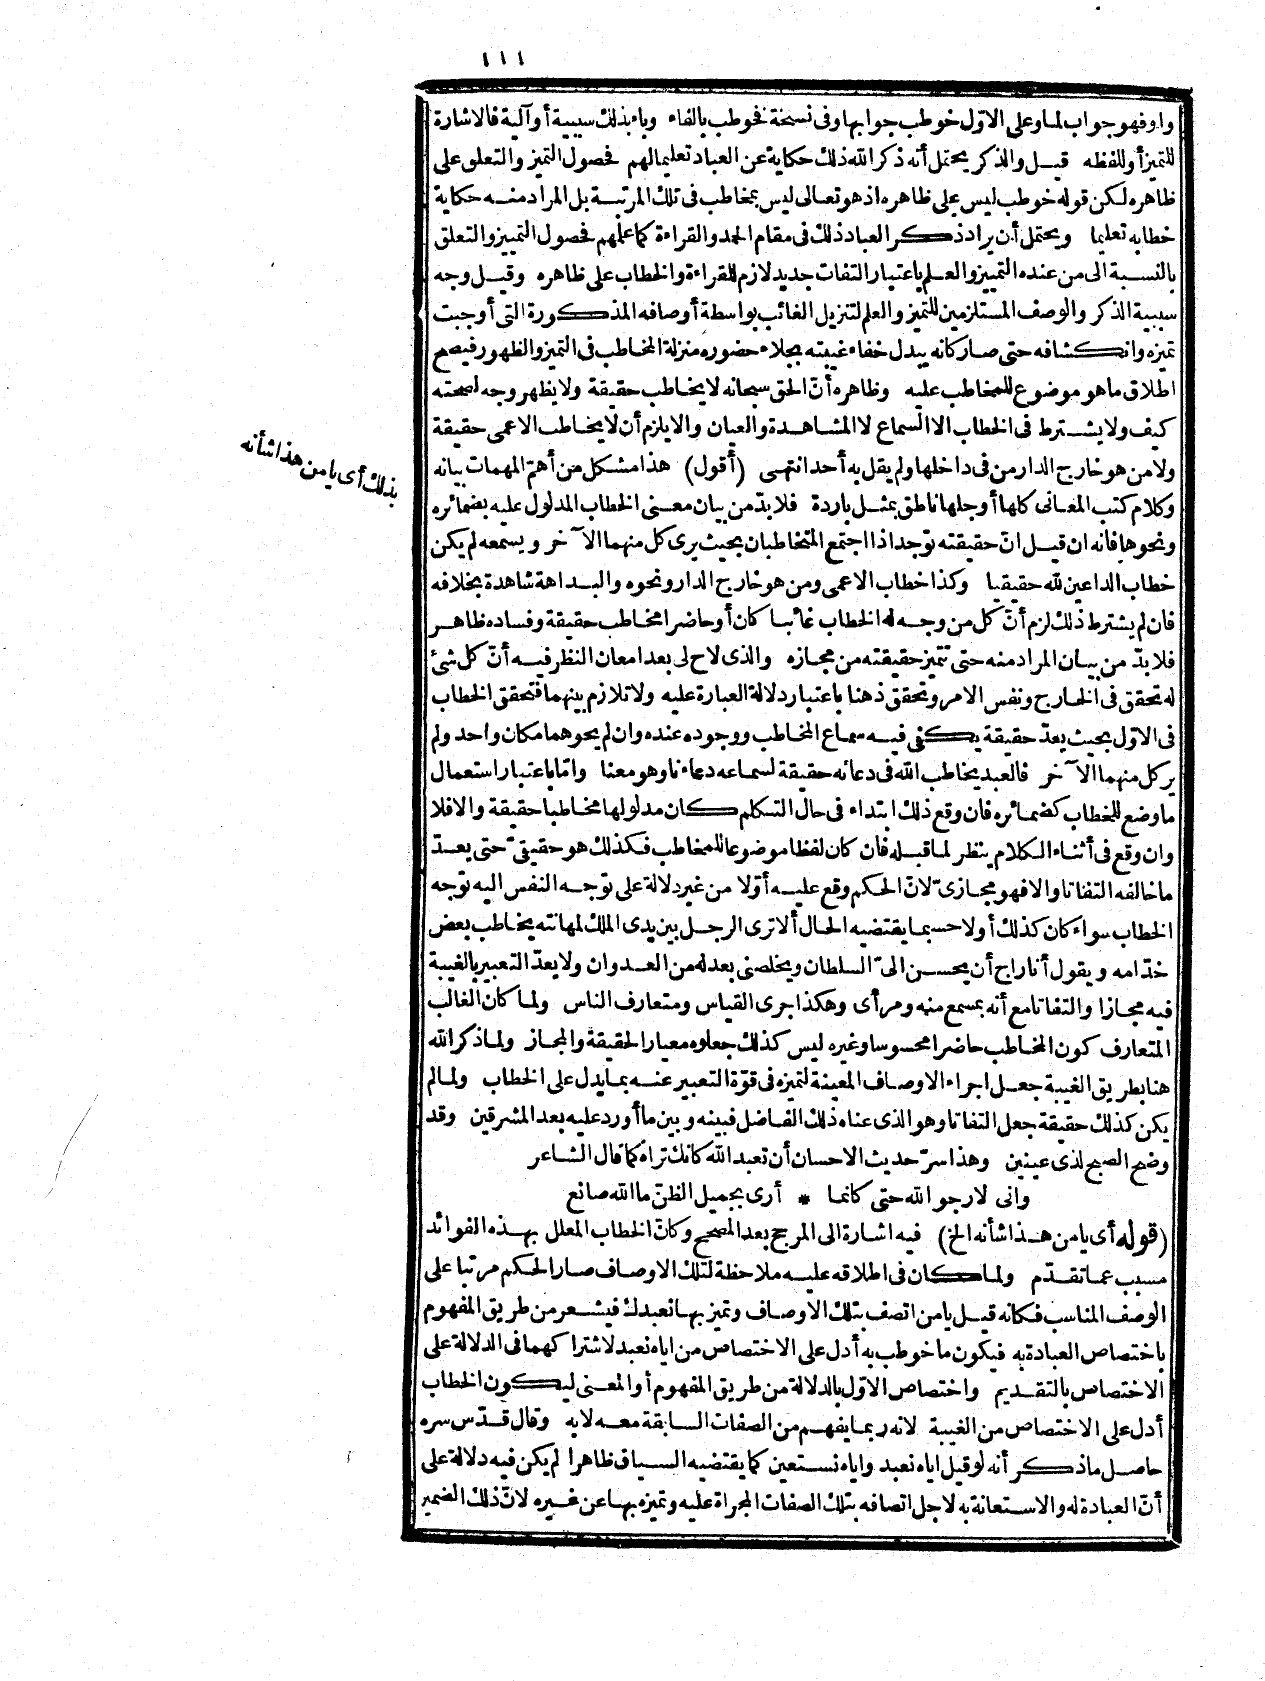 ١١١
واو فهو جواب لما وعلى الاوّل خوطب جوابها وفى نسخة فخوطب بالفاء وباء بذلك سببية أو آلية فالاشارة
للتميز أو للفظه قيل والذكر يحتمل أنه ذكر الله ذلك حكاية عن العباد تعليما لهم فحصول التميز والتعلق على
ظاهره لكن قوله خوطب ليس على ظاهره اذ هو تعالى ليس بمخاطب فى تلك المرتبة بل المراد منه حكاية
خطابه تعليما ويحتمل أن يراد ذكر العباد ذلك فى مقام الحمد والقراءة كما علمهم فحصول التمييز والتعلق
بالنسبة الى من عنده التمييز والعلم باعتبار التفات جديد لازم للقراءة والخطاب على ظاهره وقيل وجه
سببية الذكر والوصف المستلزمين للتميز والعلم لتنزيل الغائب بواسطة أوصافه المذكورة التى أوجبت
تميزه وانكشافه حتى صار كانه يبدل خفاء غيبته بجلاء حضوره منزلة المخاطب فى التميز والظهور فيصح
اطلاق ما هو موضوع للمخاطب عليه وظاهره أنّ الحق سبحانه لا يخاطب حقيقة ولا يظهر وجه لصحته
كيف ولا يشترط فى الخطاب الا السماع لا المشاهدة والعيان والا يلزم أن لا يخاطب الاعمى حقيقة
ولا من هو خارج الدار من فى داخلها ولم يقل به أحد انتهى (أقول) هذا مشكل من أهمّ المهمات بيانه
وكلام كتب المعانى كلها أو جلها ناطق بمثل باردة فلا بدّ من بيان معنى الخطاب المدلول عليه بضمائره
ونحوها فانه ان قيل انّ حقيقته توجد اذا اجتمع المتخاطبان بحيث يرى كل منهما الآخر ويسمعه لم يكن
خطاب الداعين لله حقيقيا وكذا خطاب الاعمى ومن هو خارج الدار ونحوه والبداهة شاهدة بخلافه
فان لم يشترط ذلك لزم أنّ كل من وجه له الخطاب غائبا كان أو حاضرا مخاطب حقيقة وفساده ظاهر
فلا بدّ من بيان المراد منه حتى تتميز حقيقته من مجازه والذى لاح لى بعد امعان النظر فيه أنّ كل شئ
له تحقق فى الخارج ونفس الامر وتحقق ذهنا باعتبار دلالة العبارة عليه ولا تلازم بينهما فتحقق الخطاب
فى الاوّل بحيث يعدّ حقيقة يكفى فيه سماع المخاطب ووجوده عنده وان لم يحوهما مكان واحد ولم
ير كل منهما الآخر فالعبد يخاطب الله فى دعائه حقيقة لسماعه دعاءنا وهو معنا وامّا باعتبار استعمال
ما وضع للخطاب كضمائره فان وقع ذلك ابتداء فى حال التكلم كان مدلولها مخاطبا حقيقة والا فلا
وان وقع فى أثناء الكلام ينظر لما قبله فان كان لفظا موضوعا للمخاطب فكذلك هو حقيقىّ حتى يعدّ
ما خالفه التفاتا والا فهو مجازىّ لانّ الحكم وقع عليه أوّلا من غير دلالة على توجه النفس اليه توجه
الخطاب سواء كان كذلك أو لا حسبما يقتضيه الحال ألا ترى الرجل بين يدى الملك لمهابته يخاطب بعض
خدّامه ويقول أنا راج أن يحسن الىّ السلطان ويخلصنى بعدله من العدوان ولا يعدّ التعبير بالغيبة
فيه مجازا والتفاتا مع أنه بمسمع منه ومرأى وهكذا جرى القياس ومتعارف الناس ولما كان الغالب
المتعارف كون المخاطب حاضرا محسوسا وغيره ليس كذلك جعلوه معيار الحقيقة والمجاز ولما ذكر الله
هنا بطريق الغيبة جعل اجراء الاوصاف المعينة لتميزه فى قوّة التعبير عنه بما يدل على الخطاب ولما لم
يكن كذلك حقيقة جعل التفاتا وهو الذى عناه ذلك الفاضل فبينه وبين ما أورد عليه بعد المشرقين وقد
وضح الصبح لذى عينين وهذا سرّ حديث الاحسان أن تعبد الله كانك تراه كما قال الشاعر
وانى لارجو الله حتى كانما * أرى بجميل الظنّ ما الله صانع
(قوله أى يا من هذا شأنه الخ) فيه اشارة الى المرجح بعد المصحح وكانّ الخطاب المعلل بهذه الفوائد
مسبب عما تقدّم ولما كان فى اطلاقه عليه ملاحظة لتلك الاوصاف صار الحكم مرتبا على
الوصف المناسب فكانه قيل يا من اتصف بتلك الاوصاف وتميز بها نعبدك فيشعر من طريق المفهوم
باختصاص العبادة به فيكون ما خوطب به أدل على الاختصاص من اياه نعبد لاشتراكهما فى الدلالة على
الاختصاص بالتقديم واختصاص الاوّل بالدلالة من طريق المفهوم أو المعنى ليكون الخطاب
أدل على الاختصاص من الغيبة لانه ربما يفهم من الصفات السابقة معه لا به وقال قدّس سره
حاصل ما ذكر أنه لو قيل اياه نعبد واياه نستعين كما يقتضيه السياق ظاهرا لم يكن فيه دلالة على
أنّ العبادة له والاستعانة به لاجل اتصافه بتلك الصفات المجراة عليه وتميزه بها عن غيره لانّ ذلك الضمير
بذلك أى يا من هذا شأنه